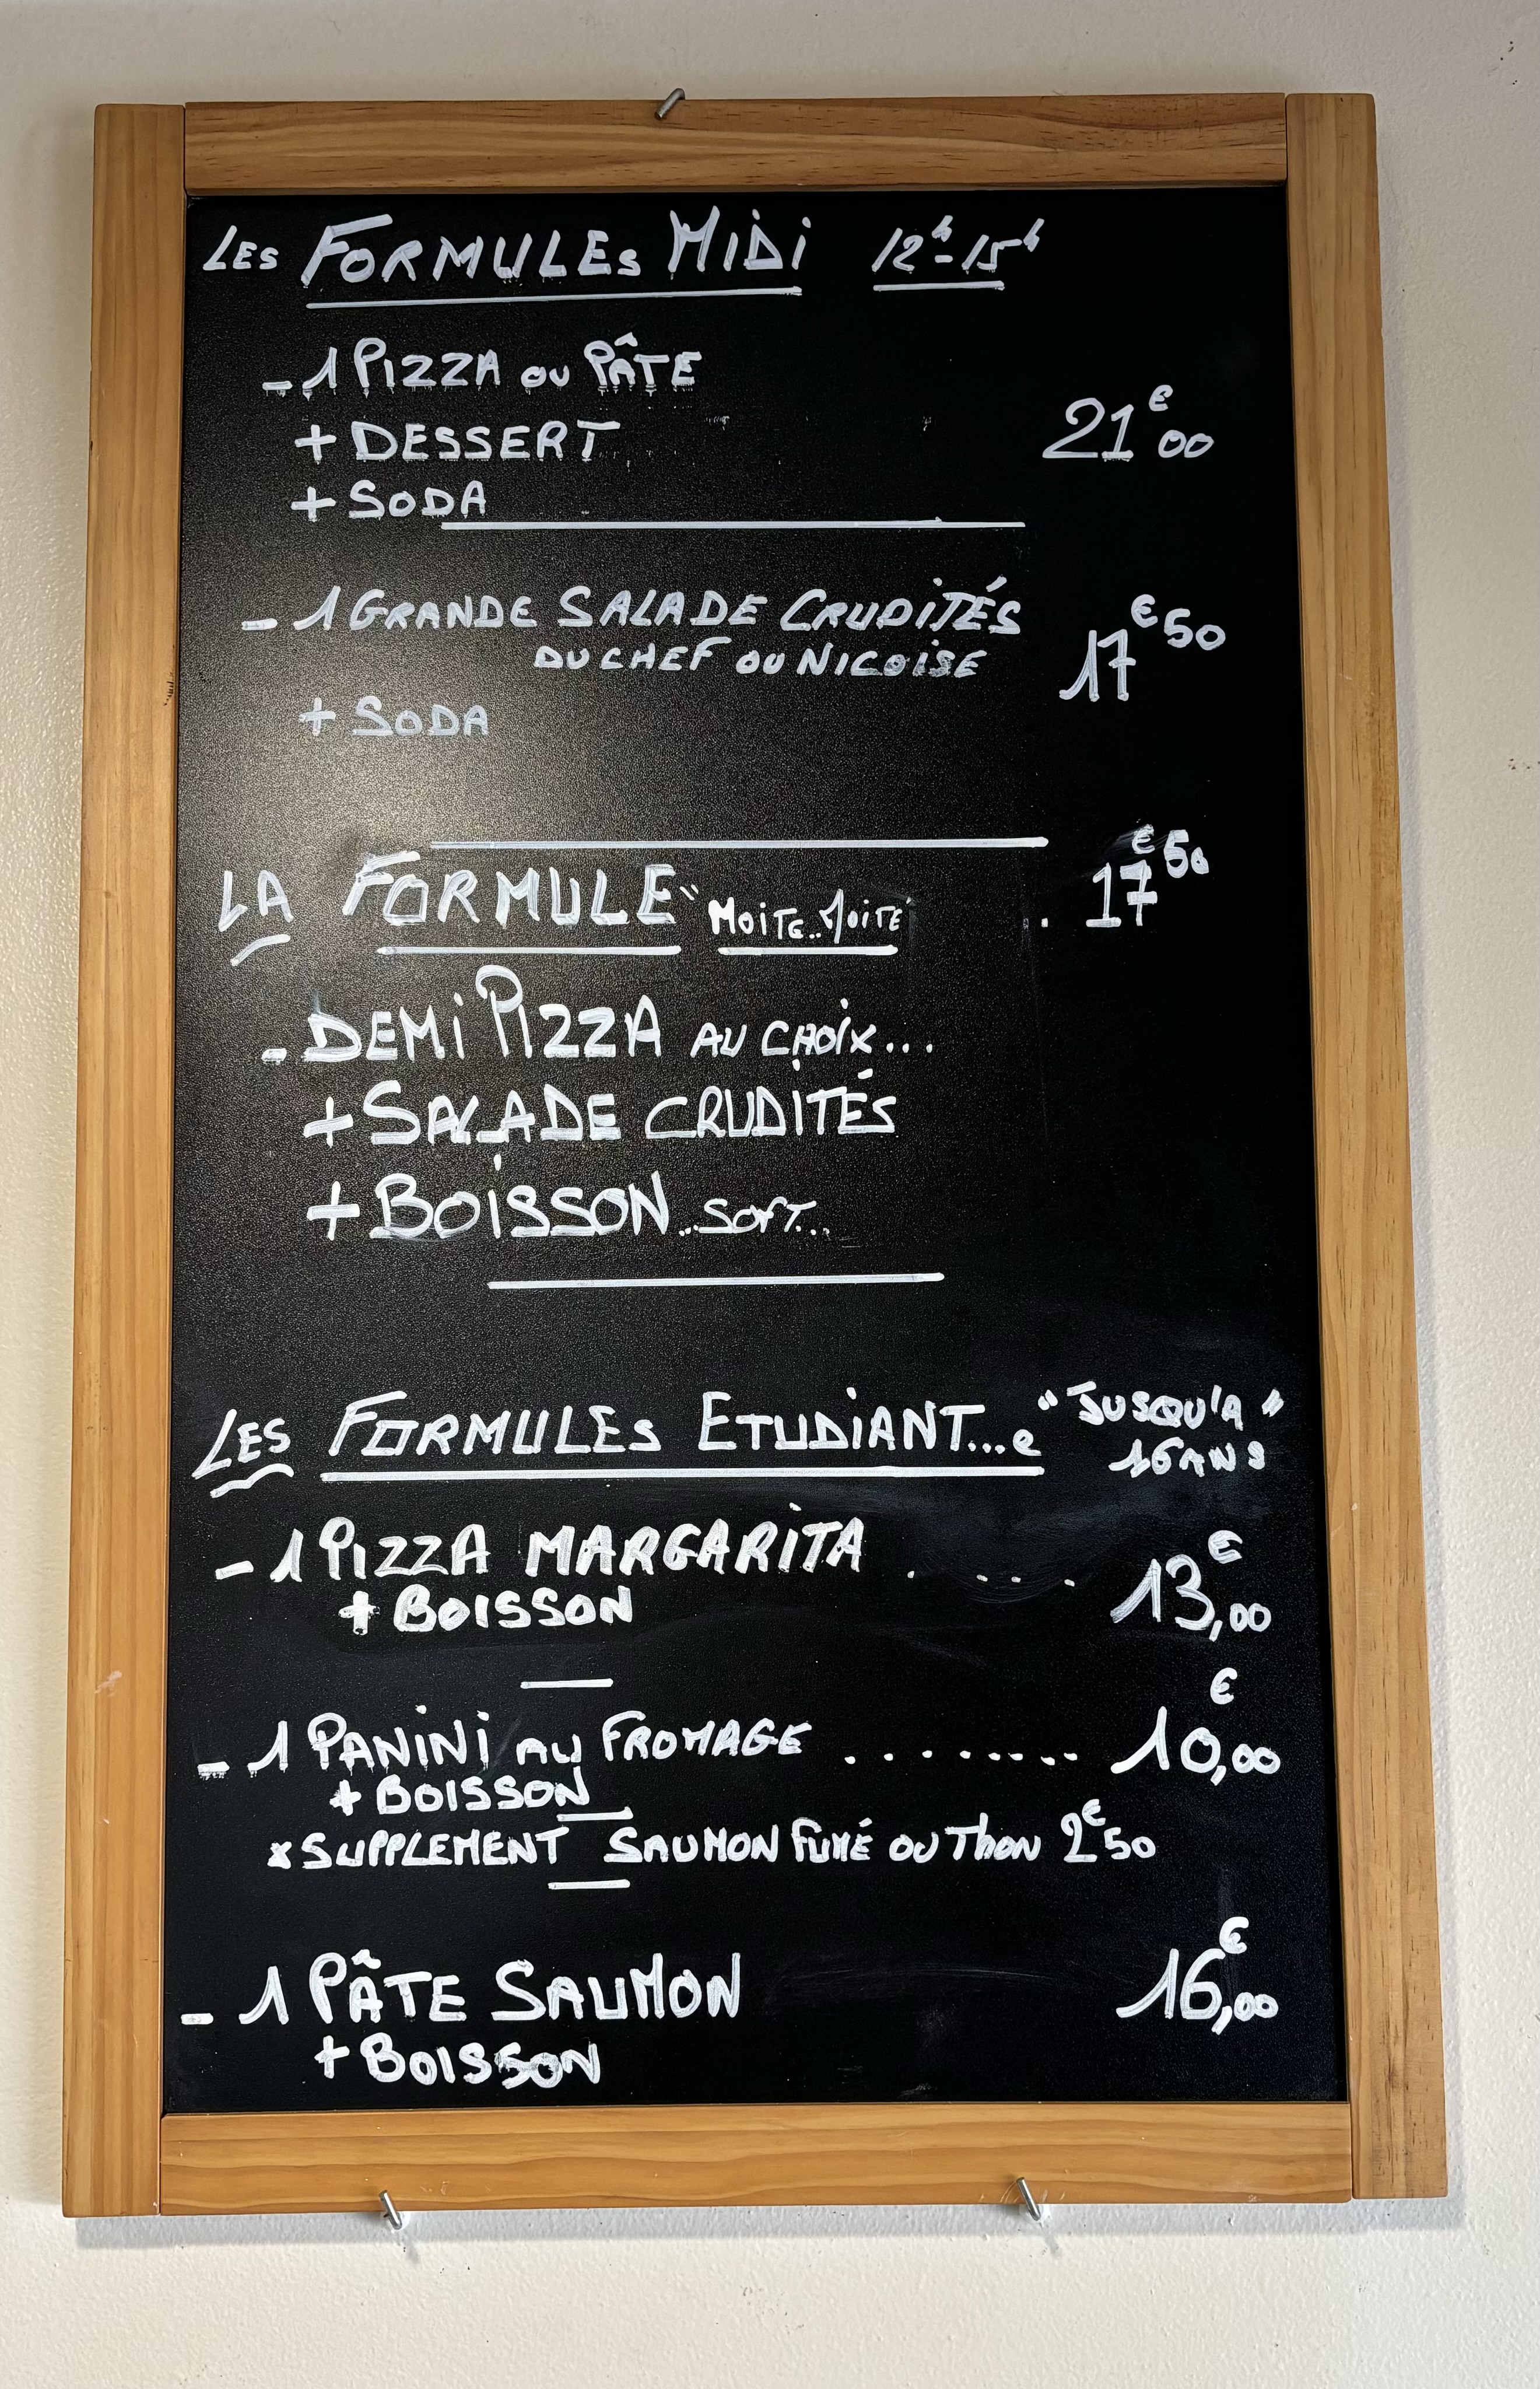 LES FORMULES MIDI 12h-15h
- 1 PIZZA OU PÂTE
+ DESSERT
21€00
+ SODA
- 1 GRANDE SALADE CRUDITÉS
DU CHEF OU NICOISE
17€50
+ SODA
LA FORMULE "MOITE..MOITE" . 17€50
- DEMI PIZZA AU CHOIX...
+ SALADE CRUDITÉS
+ BOISSON..SOFT...
LES FORMULES ETUDIANT...e "JUSQU'A"
16 ANS
- 1 PIZZA MARGARITA . ... . 13,00€
+ BOISSON
- 1 PANINI AU FROMAGE ......... 10,00€
+ BOISSON
x SUPPLEMENT SAUMON FUMÉ OU THON 2€50
- 1 PÂTE SAUMON 16,00€
+ BOISSON